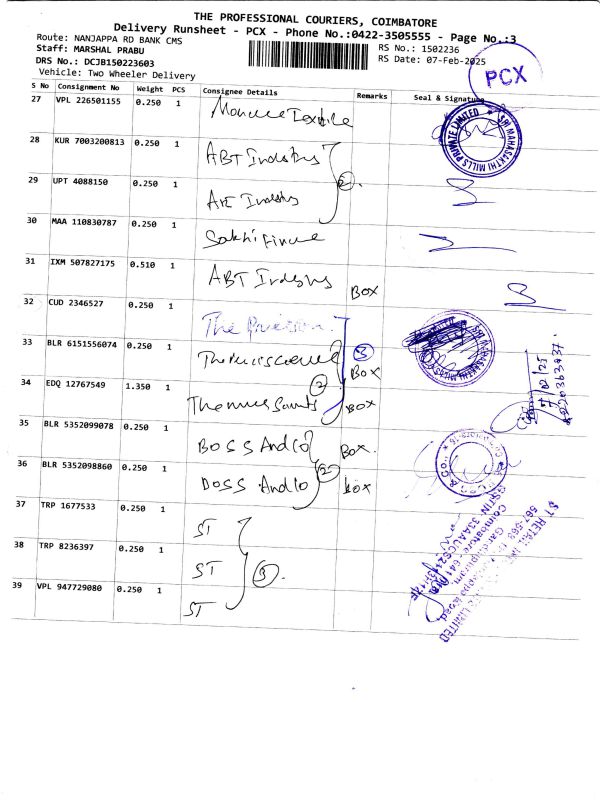 THE PROFESSIONAL COURIERS, COIMBATORE
Delivery Runsheet - PCX - Phone No.:0422-3505555 - Page No.:3
Route: NANJAPPA RD BANK CMS
RS No.: 1502236
Staff: MARSHAL PRABU
RS Date: 07-Feb-2025
DRS No.: DCJB150223603
Vehicle: Two Wheeler Delivery
PCX
S No Consignment No Weight PCS Consignee Details Remarks Seal & Signature
27 VPL 226501155 0.250 1
SRI MAHASAKTHI MILLS PRIVATE LIMITED
28 KUR 7003200813 0.250 1 ABT Industry
29 UPT 4088150 0.250 1 2
30 MAA 110830787 0.250 1 Sakthi Finance
31 IXM 507827175 0.510 1 ABT BOX
32 CUD 2346527 0.250 1 The
33 BLR 6151556074 0.250 1 3 BOX
34 EDQ 12767549 1.350 1 2 BOX
35 BLR 5352099078 0.250 1 BOSS And Co BOX
36 BLR 5352098860 0.250 1 BOSS And Co 2 BOX
37 TRP 1677533 0.250 1 ST
38 TRP 8236397 0.250 1 ST 3
39 VPL 947729080 0.250 1 ST